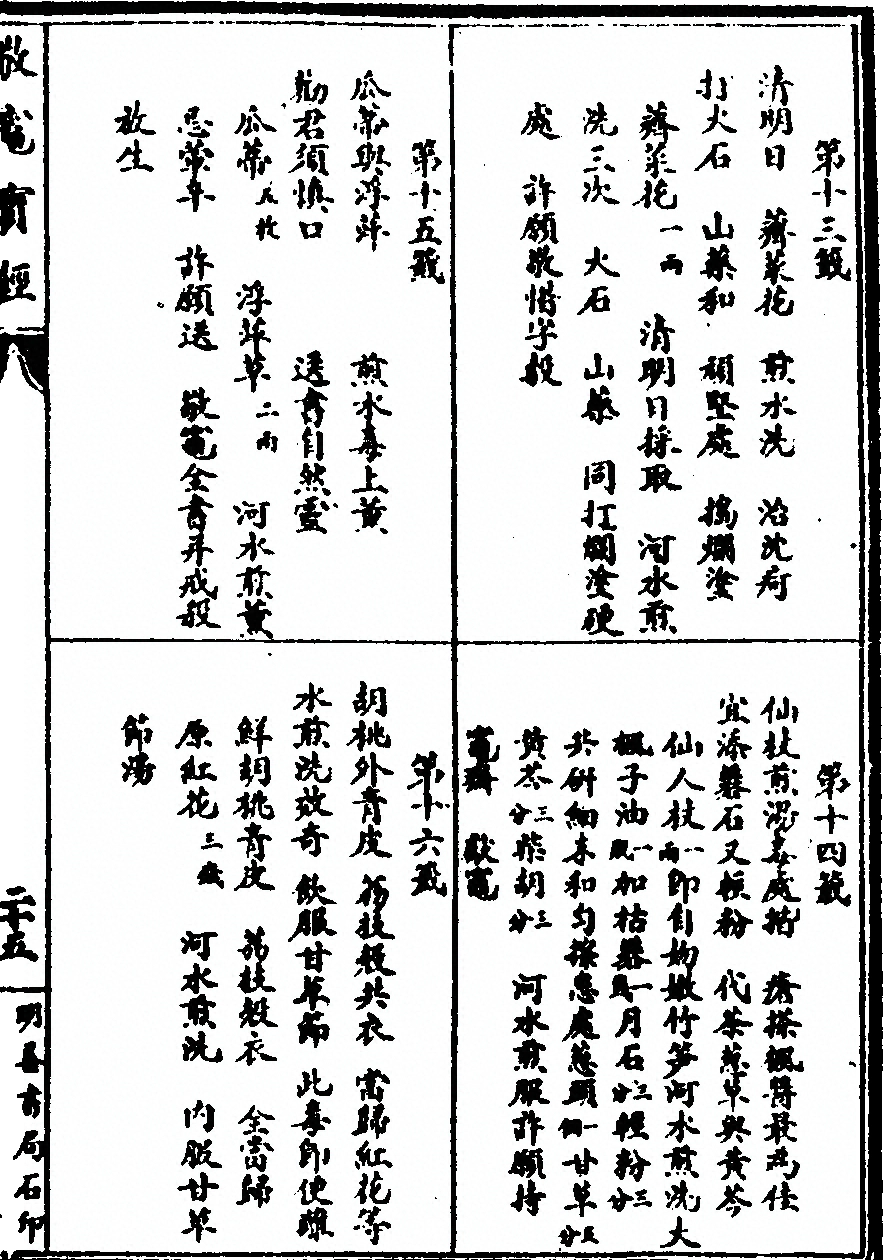 第十三籤
清明日 薺菜花 煎水洗 治沈疴
打火石 山藥和 頑堅處 搗爛塗
薺菜花一兩 清明日採取 河水煎
洗三次 火石 山藥 同打爛塗硬
處 許願敬惜字穀
第十四籤
仙杖煎湯毒處揩 瘡搽楓醬最為佳
宜添礬石又輕粉 代茶葱草與黃芩
仙人杖一兩即自嫩竹笋河水煎洗大
楓子油一加枯礬一月石三分輕粉三分
共研細末和勻搽患處葱頭一個甘草五分
黃芩三分柴胡三分 河水煎服許願持
竈齋 敬竈
第十五籤
瓜蒂與浮萍 煎水毒上薰
勸君須慎口 送書自然靈
瓜蒂五枚 浮萍草二兩 河水煎薰
忌葷辛 許願送 敬竈全書并戒殺
放生
第十六籤
胡桃外青皮 荔枝殼共衣 當歸紅花等
水煎洗效奇 飲服甘草節 此毒即便離
鮮胡桃青皮 荔枝殼衣 全當歸
原紅花三錢 河水煎洗 內服甘草
節湯
敬竈寶經
二十五
明善書局石印